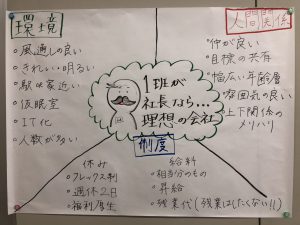 環境
・風通しの良い
・きれい・明るい
・駅or家近い
・仮眠室
・IT化
・人数が多い
人間関係
・仲が良い
・目標の共有
・幅広い年齢層
・雰囲気の良い
・上下関係の
メリハリ
1班が
社長なら…
理想の会社
制度
休み
・フレックス制
・週休2日
・福利厚生
給料
・相当分のもの
・昇給
・残業代(残業はしたくない!!)